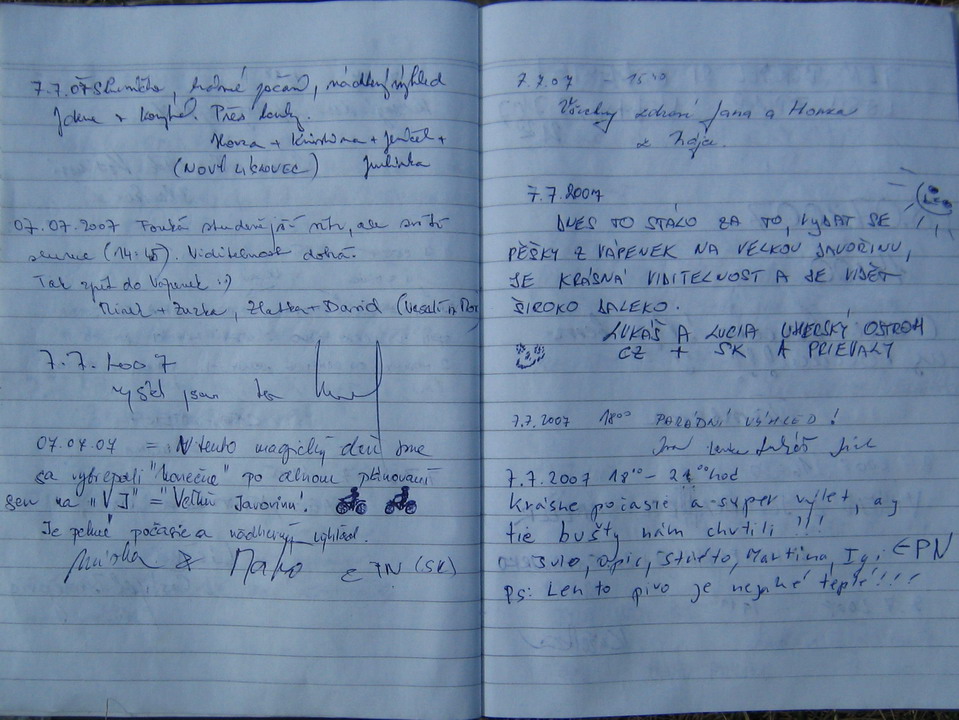 7.7.07 Sluníčko, krásné počasí, nádherný výhled
Jdeme z Přes louky.
Honza + Kristina + +
(NOVÝ LISKOVEC) Julinka
07.07.2007 Fouká studený vítr, ale svítí
slunce (14:45). Viditelnost dobrá.
Tak zpět do Vápenek :)
+ Zuzka, Zlatka + David (Veselí n. Mor
7.7.2007
vyšel jsem to
07.07.07 = V tento magický deň sme
sa vybrepali "konečne" po dlhom plánovaní
sem na "VJ" = "Veľkú Javorinu!
Je pekné počasie a nádherný výhľad.
Miška & Maťo z TN (SK)
7.7.07 - 15
Všechny zdraví Jana a Honza
z Háje.
7.7.2007
DNES TO STÁLO ZA TO, VYDAT SE
PĚŠKY Z VÁPENEK NA VELKOU JAVOŘINU,
JE KRÁSNÁ VIDITELNOST A JE VIDĚT
ŠIROKO DALEKO.
LUKÁŠ A LUCIA UHERSKÝ OSTROH
CZ + SK A PRIEVALY
7.7.2007 18⁰⁰ PARÁDNÍ VÝHLED!
Lenka Lukáš
7.7.2007 18⁰⁰ - 21⁰⁰ hod
Krásne počasie a super výlet, aj
tie bušty nám chutili !!!
Julo, Opic, Martina, PN
Ps: Len to pivo je nejaké teplé!!!!